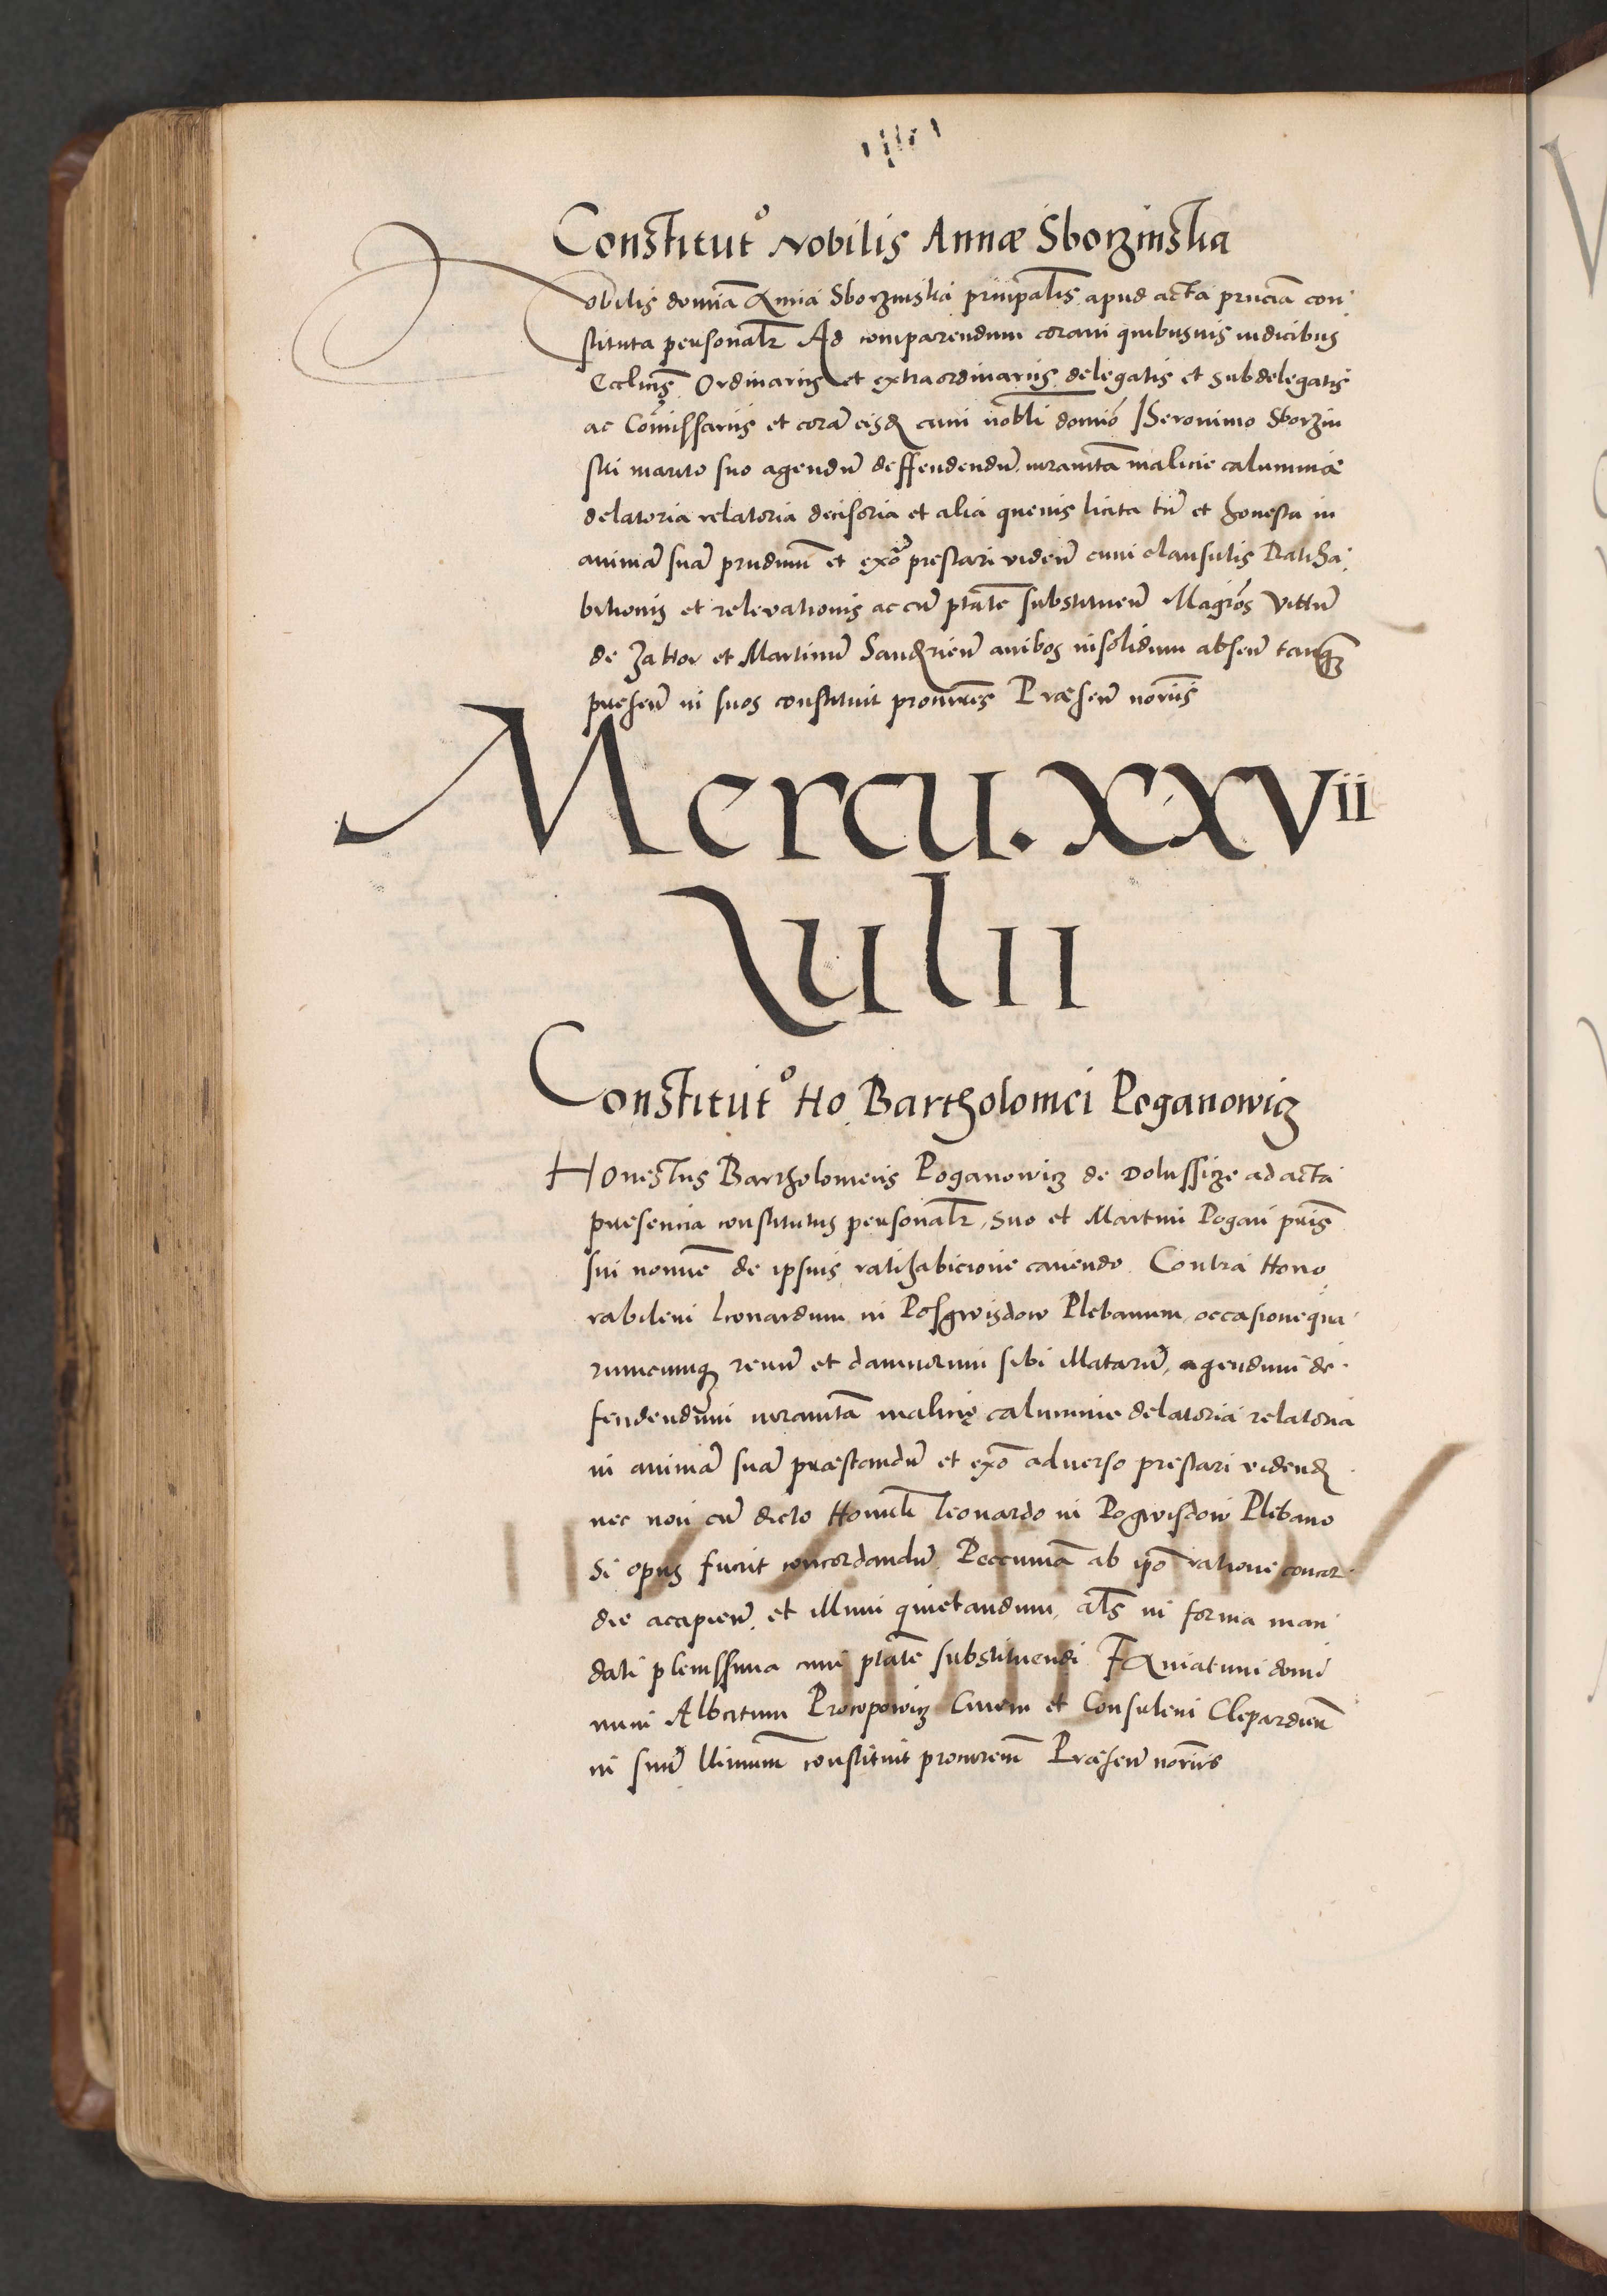 Constitutº Nobilis Annæ Sborzinska
Nobilis domīa Anna Sborzinska prīnpalīs apud acta prncīa con
stituta personalr Ad comparendum coram quibusuis iudicibus
Ecclicis Ordinariis et extraordinariis delegatis et subdelegatis
ac Comissariis et corā eisd cum nobli domīo Ieronimo Sborzin
ski marito suo agendū deffendendū iuramtā malicie calumniæ
delatoria relatoria decisoria et alia queuis licita tn̄ et honesta in
animā suā prndum et exº prestari viden̄ cum clausulis Ratiha
bitionis et relevationis ac cū ptāte substituen̄ Magrōs Vittū
de Zathor et Martinū Sandzien̄ ambos insolidum absen̄ tanq̄
presen̄ in suos constituit procures Præsen̄ noriis
Mercu. XXVii
Iulii
Constitutº Ho Bartholomei Poganowicz
Honestus Bartholomeus Poganowicz de Dolussicze ad acta
presencia constitutus personalr suo et Martini Pogan pris
sui nomīe de ipsius ratihabicione cauendo Contra Hono
rabilem Leonardum in Posgwisdow Plebanum occasione qua
rumcumq rerum et damnorum sibi illatarū, agendum de
fendendum iuramtā malicie calumnie delatoria relatoria
in animā suā præstandū et exº aduerso prestari vidend
nec non cū dicto Honbli Leonardo in Pogwisdow Plebano
Si opus fuerit concordandū Peccuniā ab ipō ratione concor
die accipien̄ et illum quietandum, als in forma man
dati plenissima cum ptāte substituendi Famatum domi
num Albertum Procopowicz Ciuem et Consulem Clepardien̄
in suū constituit procurem Præsen̄ noriis